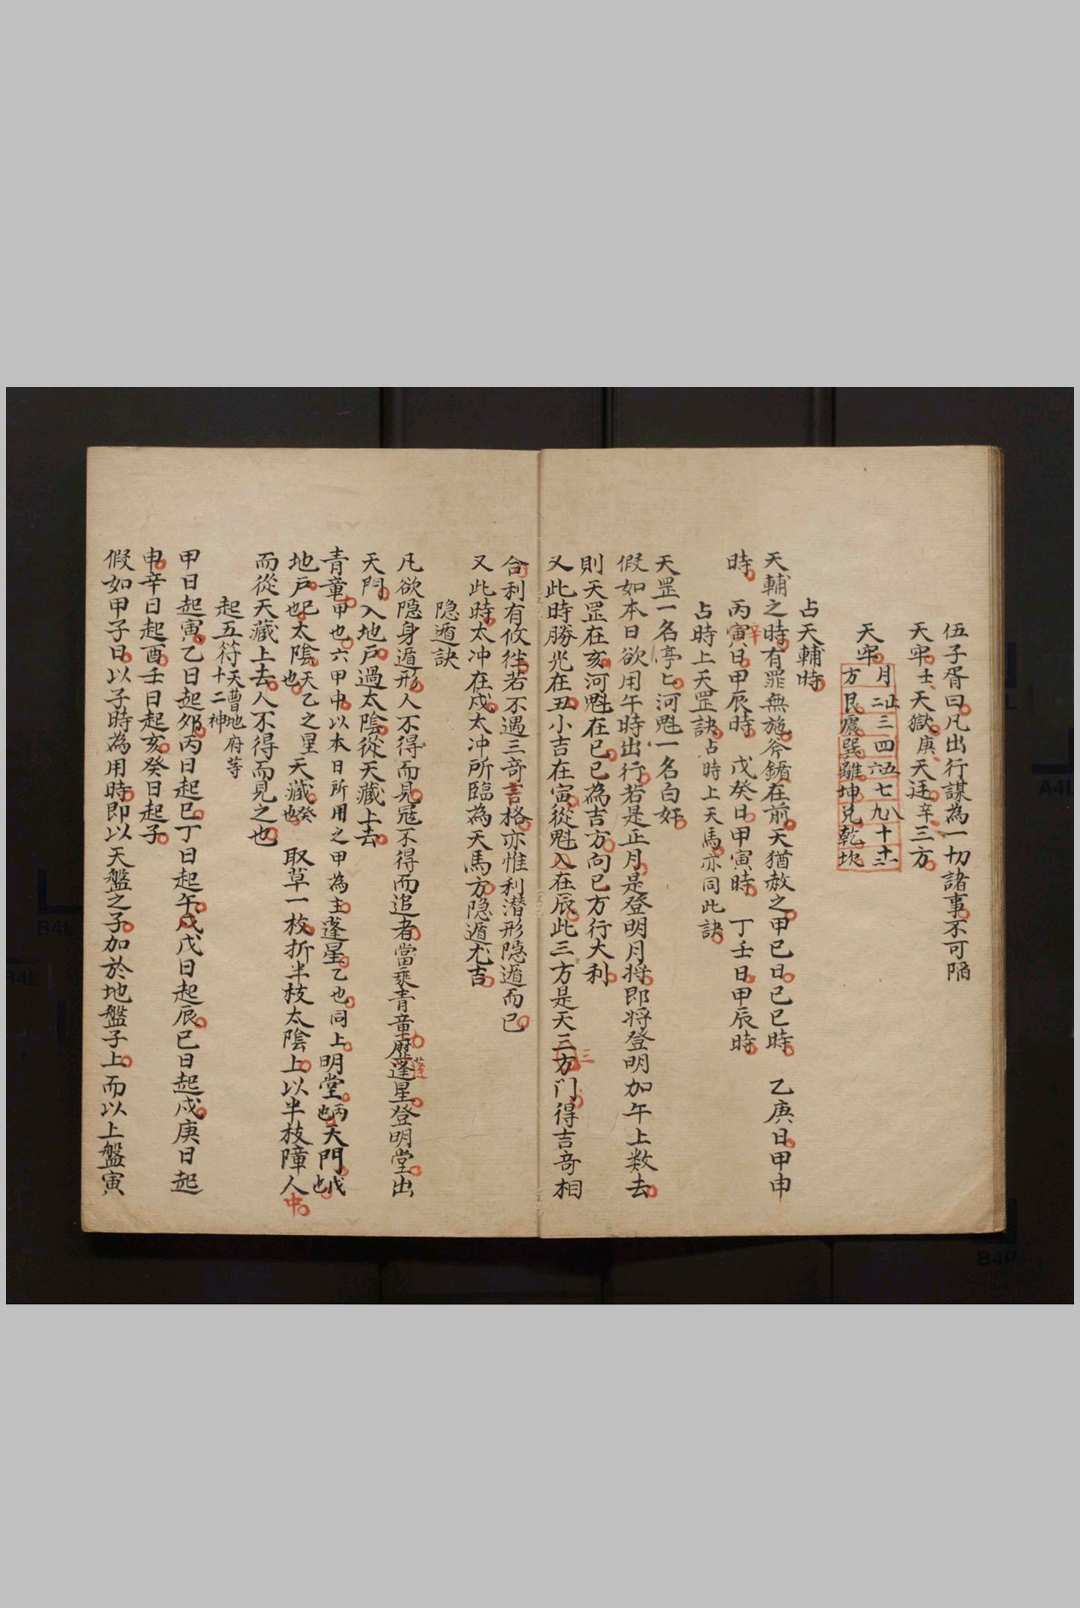 伍子胥曰凡出行謀為一切諸事不可陷
天牢壬天獄庚天迋辛三方
天牢
月 三四五六七八九十
方 艮震巽離坤兌乾坎
占天輔時
天輔之時有罪無施斧鑕在前天猶赦之甲巳日巳巳時 乙庚日甲申
時 丙辛日甲辰時 戊癸日甲寅時 丁壬日甲辰時
占時上天罡訣占時上天馬亦同此訣
天罡一名亭亭河魁一名白奸
假如本日欲用午時出行若是正月是登明月將即將登明加午上数去
則天罡在亥河魁在巳巳為吉方向巳方行大利
又此時勝光在丑小吉在寅從魁入在辰此三方是天三门得吉竒相
合利有攸往若不遇三竒吉格亦惟利潛形隠遁而已
又此時太冲在戌太冲所臨為天馬方隠遁尤吉
隠遁訣
凡欲隠身遁形人不得而見冠不得而追者當乘青童歷蓬星登明堂出
天門入地戶過太陰從天藏上去
青童甲也六甲中以本日所用之甲為主蓬星乙也同上明堂丙也天門戊也
地戶巳也太陰天乙之星也天藏癸也 取草一枝折半枝太陰上以半枝障人中
而從天藏上去人不得而見之也
起五符天曹地府等十二神
甲日起寅乙日起夘丙日起巳丁日起午戊日起辰巳日起戌庚日起
申辛日起酉壬日起亥癸日起子
假如甲子日以子時為用時即以天盤之子加於地盤子上而以上盤寅